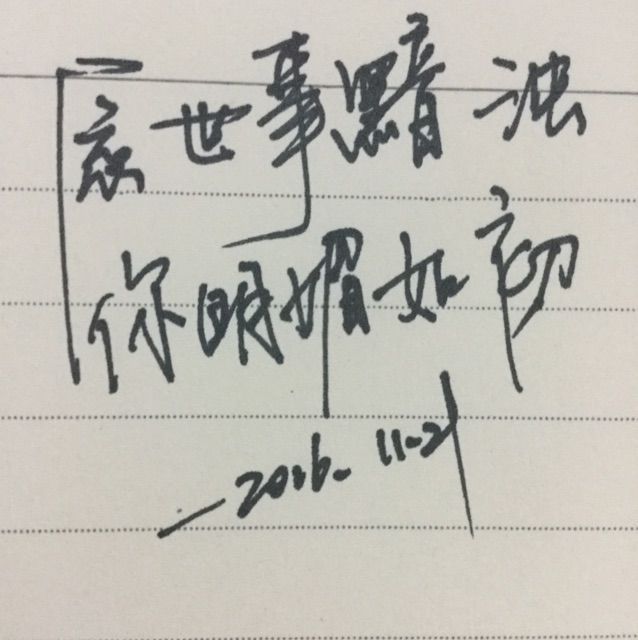 愿世事黯浊
你明媚如初
—2016.11-21